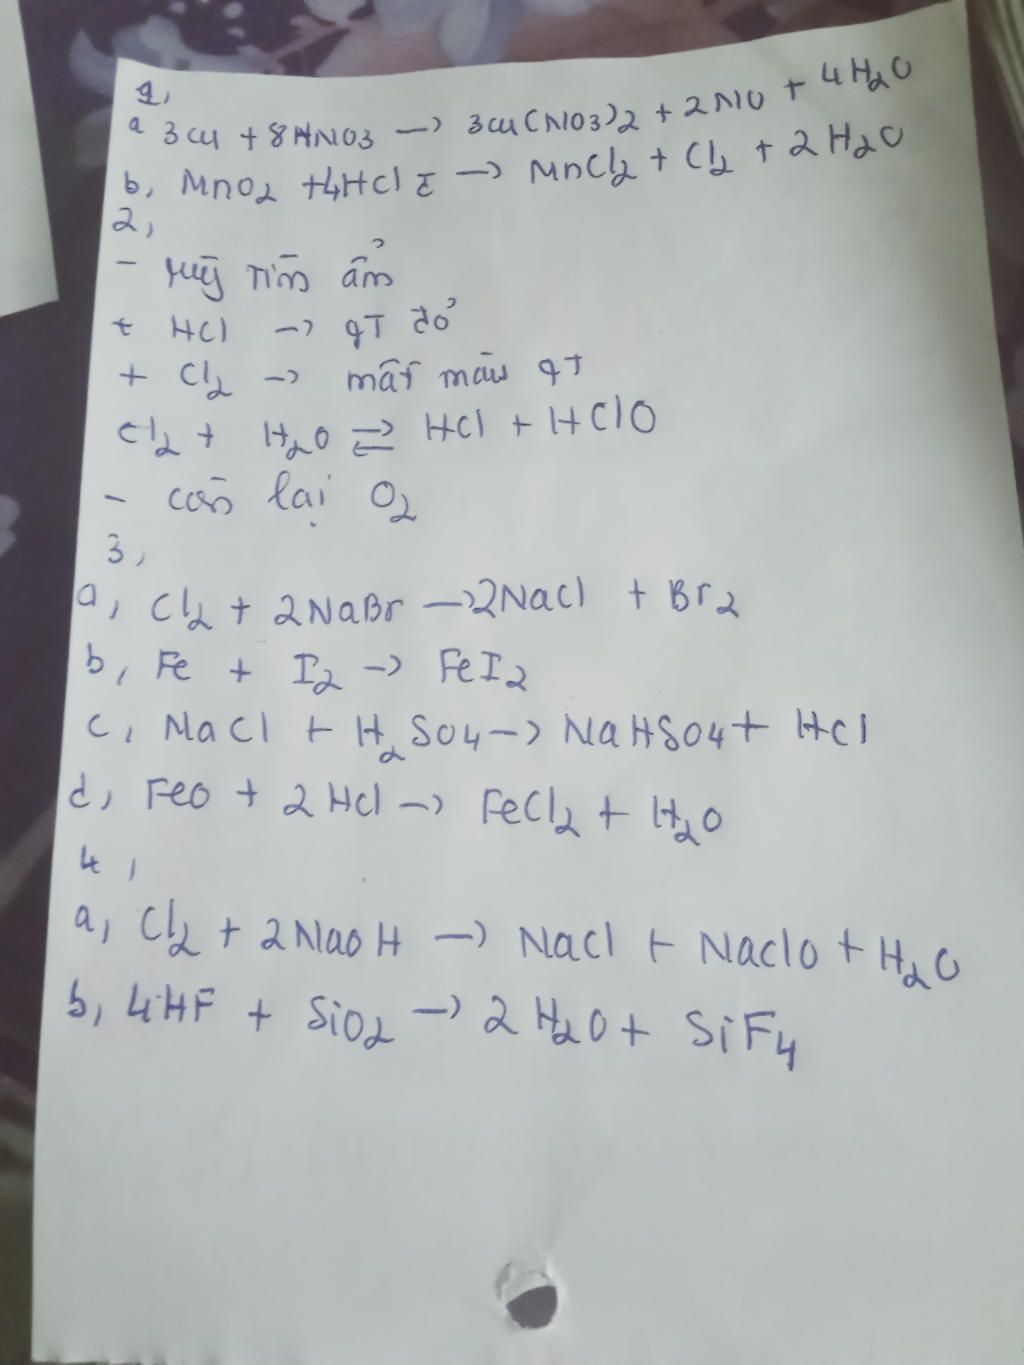 1,
a 3Cu + 8HNO3 → 3Cu(NO3)2 + 2NO + 4H2O
b, MnO2 + 4HCl → MnCl2 + Cl2 + 2H2O
2,
- quỳ tím ẩm
+ HCl → qT đỏ
+ Cl2 → mất màu qT
Cl2 + H2O ⇌ HCl + HClO
- còn lại O2
3,
a, Cl2 + 2NaBr → 2NaCl + Br2
b, Fe + I2 → FeI2
c, NaCl + H2SO4 → NaHSO4 + HCl
d, FeO + 2HCl → FeCl2 + H2O
4,
a, Cl2 + 2NaOH → NaCl + NaClO + H2O
b, 4HF + SiO2 → 2H2O + SiF4